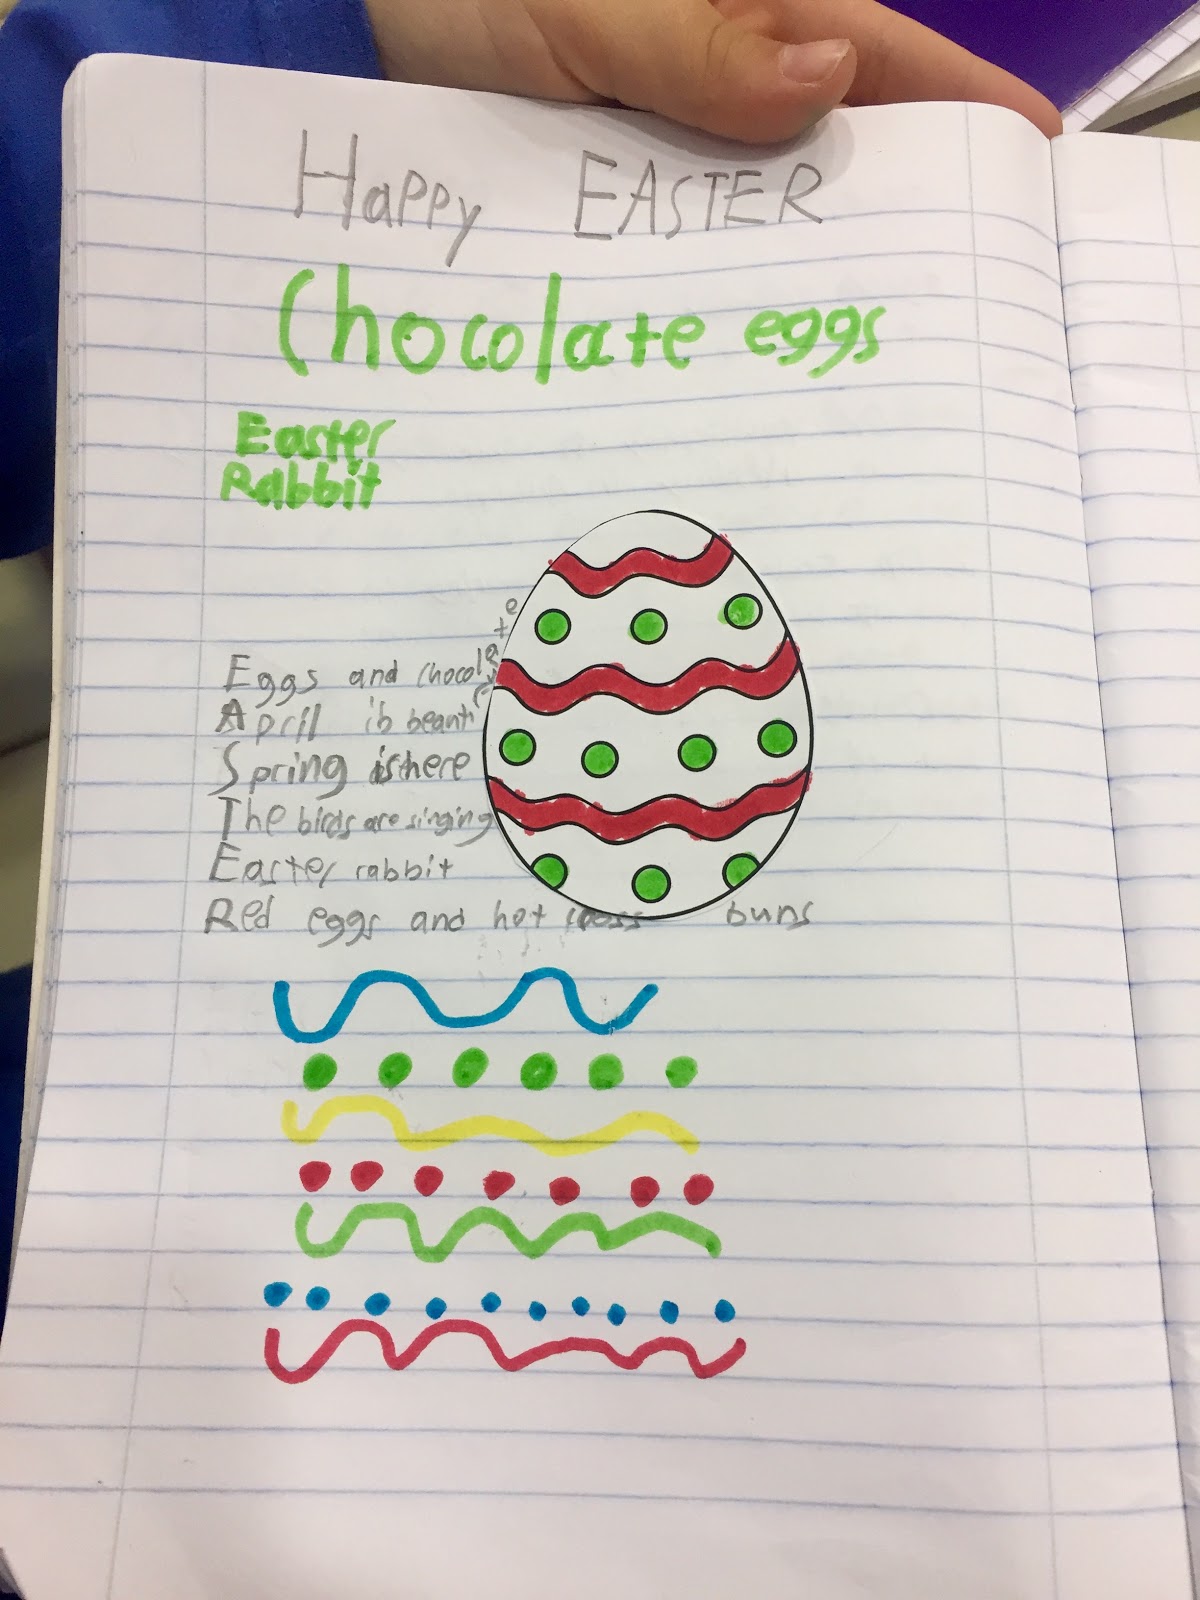 Happy EASTER
Chocolate eggs
Easter
Rabbit
Eggs and chocolate
April is beautif
Spring is here
The birds are singing
Easter rabbit
Red eggs and hot cross buns